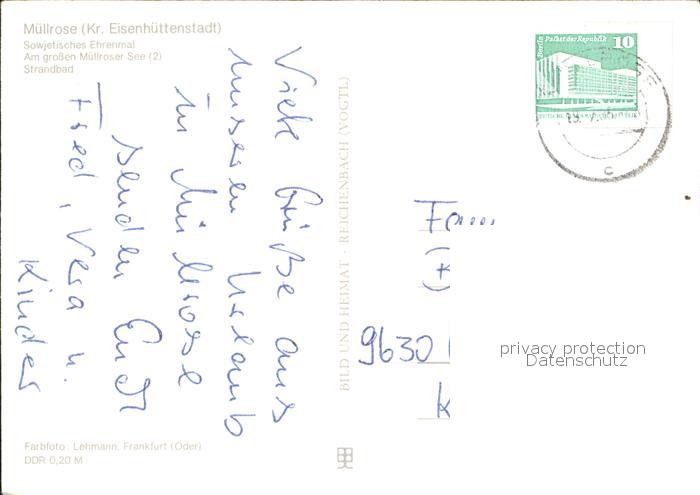 Müllrose (Kr. Eisenhüttenstadt)
Sowjetisches Ehrenmal
Am großen Müllroser See (2)
Strandbad
Viele Grüße aus
unseren Urlaub
in Müllrose
senden Euch
Fred, Vera u.
Kinder
BILD UND HEIMAT · REICHENBACH (VOGTL)
Berlin Palast der Republik 10
DEUTSCHE DEMOKRATISCHE REPUBLIK
c
Fa....
(+)
9630 1
K
privacy protection
Datenschutz
Farbfoto: Lehmann, Frankfurt (Oder)
DDR 0,20 M